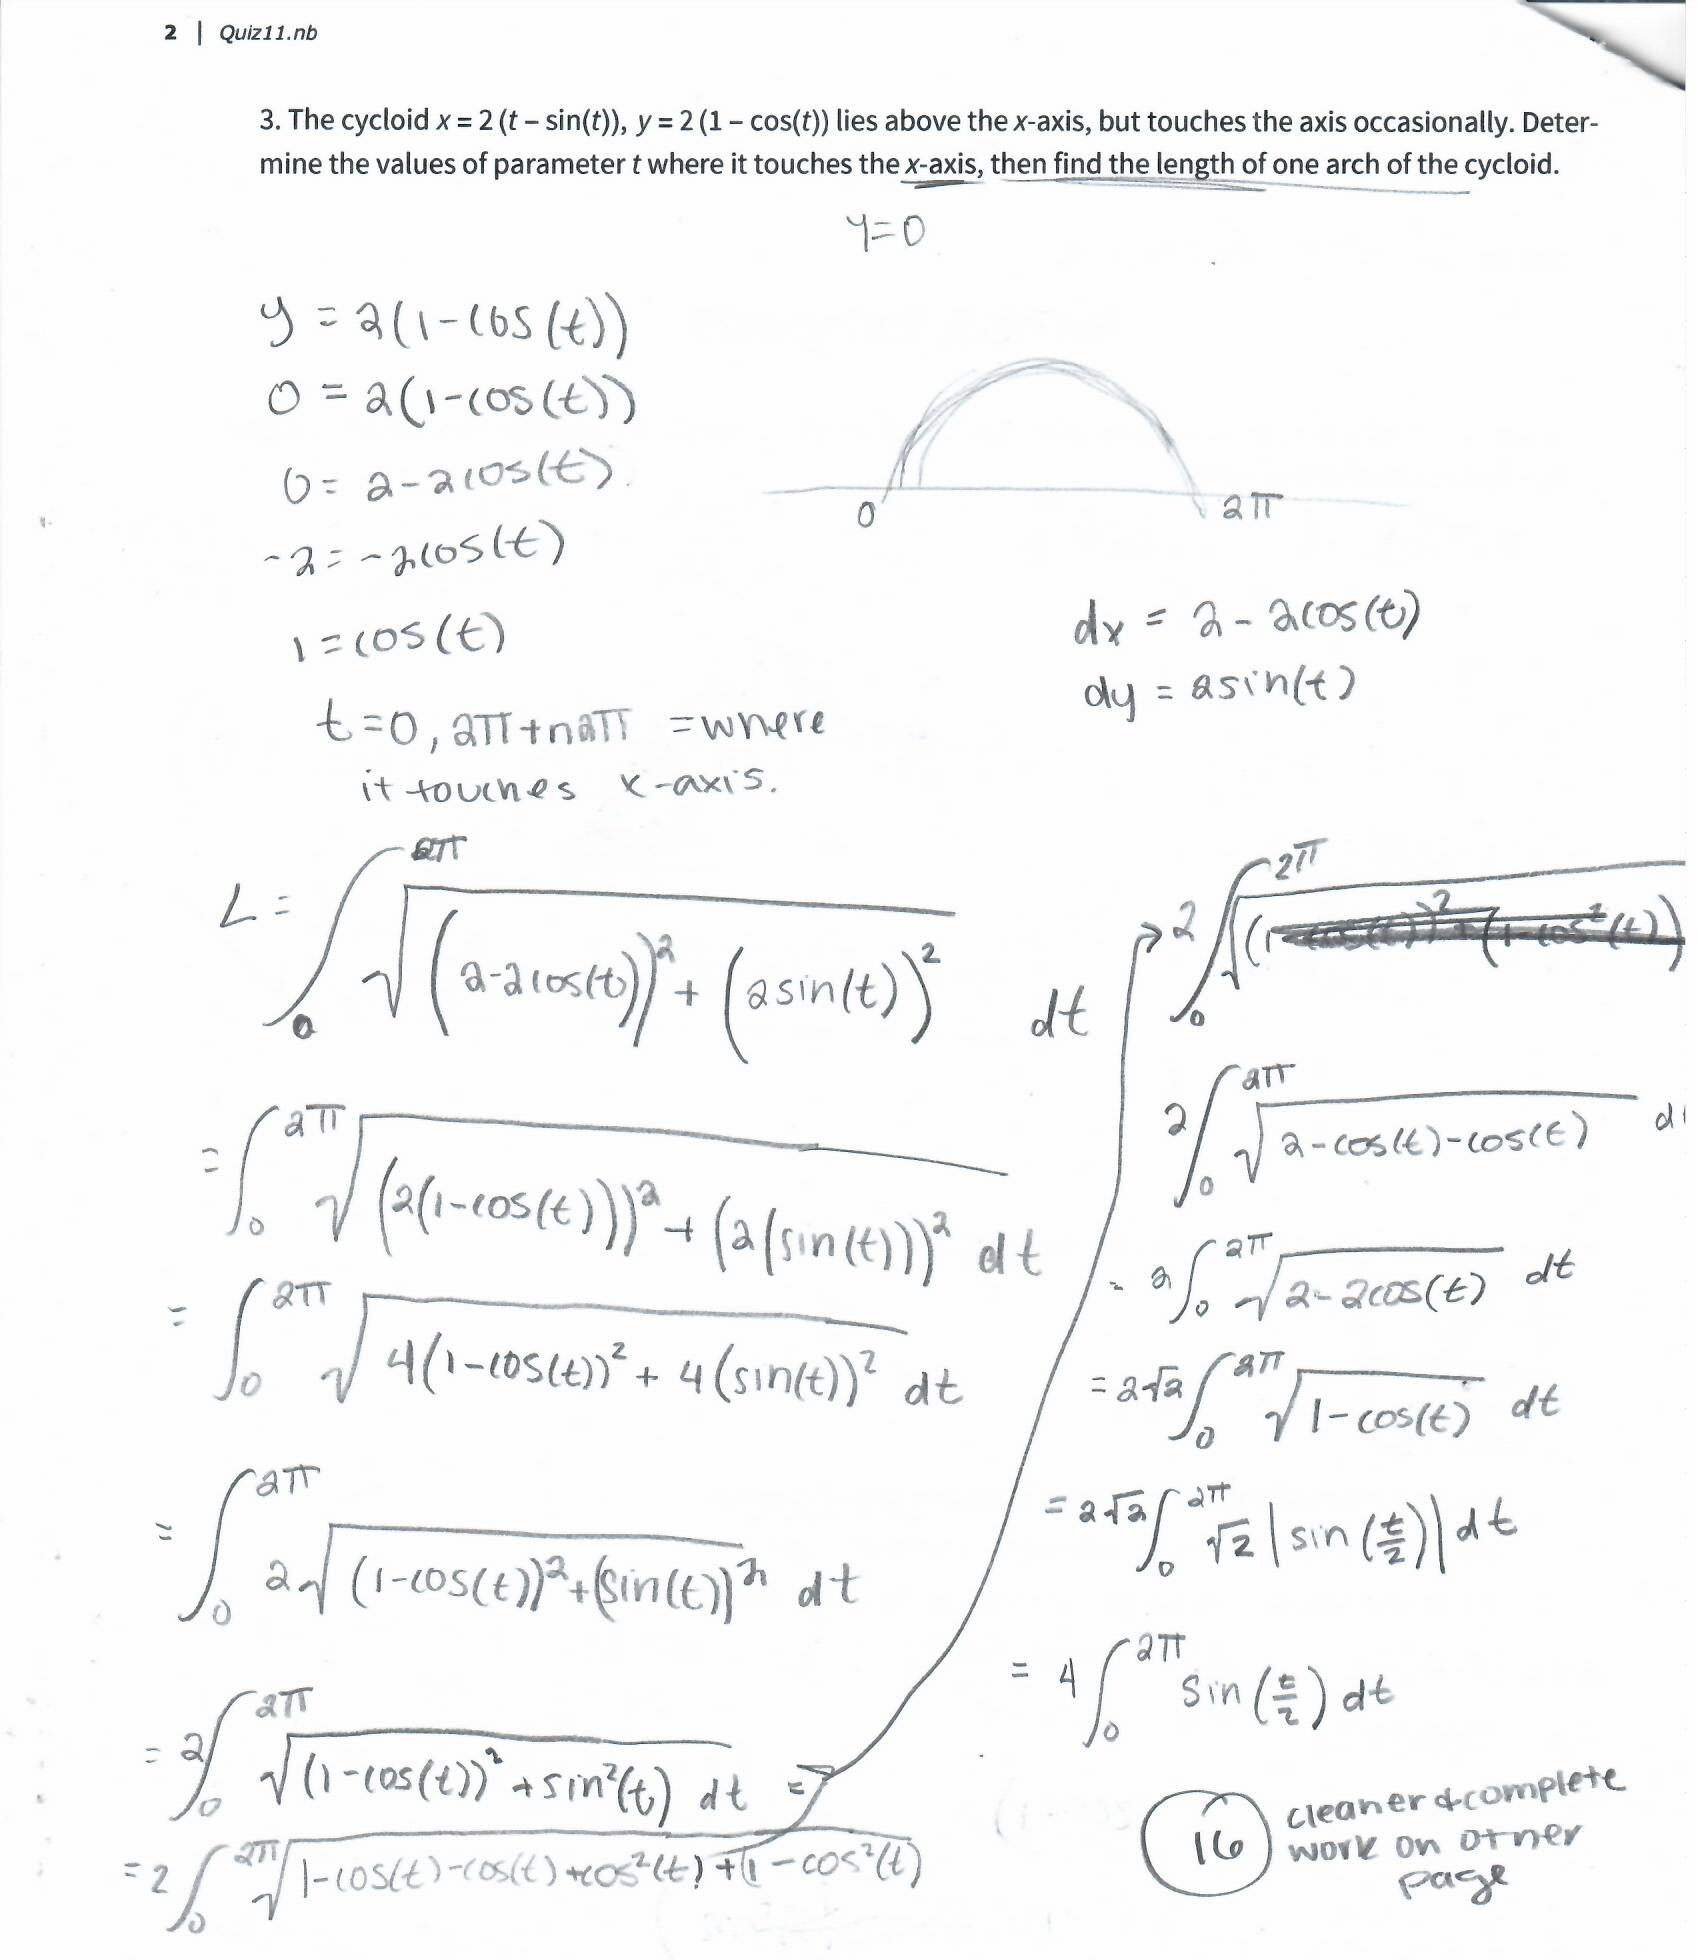 2 | Quiz11.nb
3. The cycloid x = 2 (t – sin(t)), y = 2 (1 – cos(t)) lies above the x-axis, but touches the axis occasionally. Deter-
mine the values of parameter t where it touches the x-axis, then find the length of one arch of the cycloid.
y=0
y = 2(1-cos(t))
0 = 2(1-cos(t))
0= 2-2cos(t).
-2=-2cos(t)
1=cos(t)
t=0, 2π+n2π =where
it touches x-axis.
0
2π
dx = 2-2cos(t)
dy = 2sin(t)
L = ∫₀^2π √((2-2cos(t))² + (2sin(t))²) dt
= ∫₀^2π √((2(1-cos(t)))² + (2(sin(t)))²) dt
= ∫₀^2π √(4(1-cos(t))² + 4(sin(t))²) dt
= ∫₀^2π 2√((1-cos(t))²+(sin(t))²) dt
= 2∫₀^2π √((1-cos(t))²+sin²(t)) dt =
= 2∫₀^2π √(1-cos(t)-cos(t)+cos²(t)+(1-cos²(t))
→ 2∫₀^2π √((1-cos(t))²+(1-cos²(t))
2∫₀^2π √(2-cos(t)-cos(t)) d
= 2∫₀^2π √(2-2cos(t)) dt
= 2√2 ∫₀^2π √(1-cos(t)) dt
= 2√2 ∫₀^2π √2 |sin(t/2)| dt
= 4∫₀^2π sin(t/2) dt
16
cleaner & complete
work on other
page